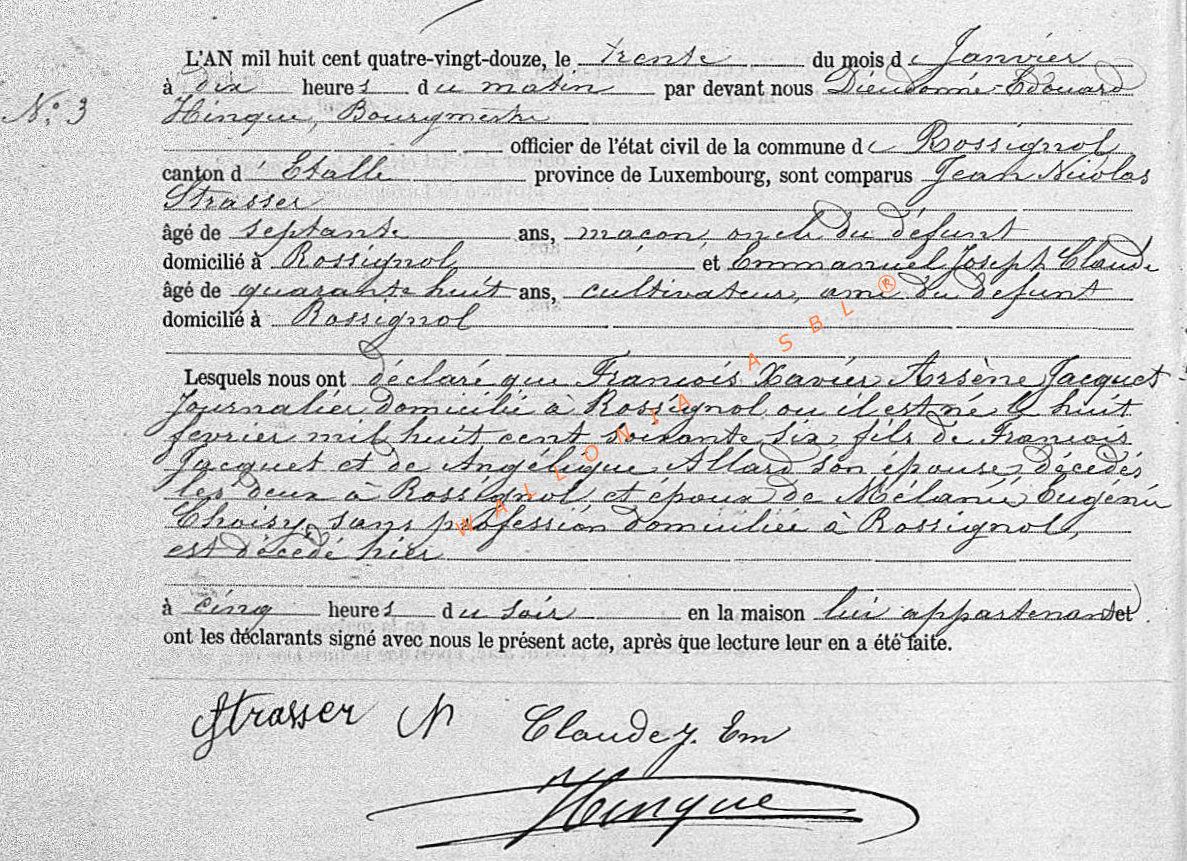 L'AN mil huit cent quatre-vingt-douze, le trente du mois de Janvier
à dix heures du matin par devant nous Dieudonné-Edouard
N° 3 Hinque, Bourgmestre
officier de l'état civil de la commune de Rossignol
canton d'Etalle province de Luxembourg, sont comparus Jean Nicolas
Strasser
âgé de septante ans, maçon, oncle du défunt
domicilié à Rossignol et Emmanuel Joseph Claude
âgé de quarante huit ans, cultivateur, ami du défunt
domicilié à Rossignol
Lesquels nous ont déclaré que François Xavier Arsène Jacquet
Journalier domicilié à Rossignol ou il est né le huit
fevrier mil huit cent soixante six, fils de François
Jacquet et de Angélique Allard son épouse, décédés
les deux a Rossignol et époux de Mélanie Eugénie
Choisy, sans profession domiciliée à Rossignol,
est décédé hier
à cinq heures du soir en la maison lui appartenant et
ont les déclarants signé avec nous le présent acte, après que lecture leur en a été faite.
Strasser N Claude J. Em
Hinque
WALLONIA ASBL ®